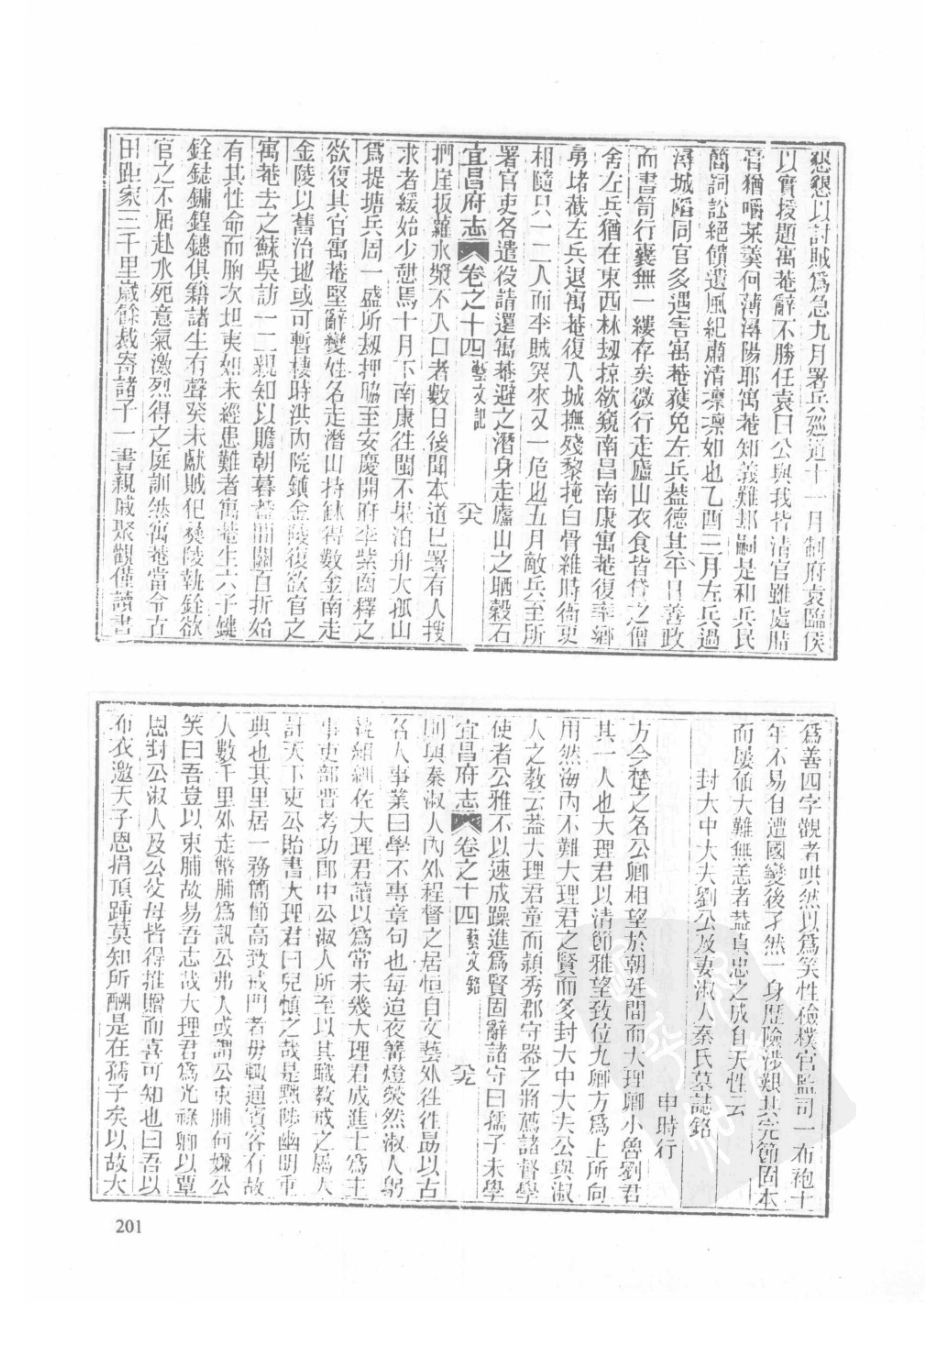 懇懇以討賊爲急九月署兵廵道十一月制府袁臨侯
以實援題寓菴辭不勝任袁曰公與我皆清官雖處脂
膏猶嚼菜羹何薄潯陽耶寓菴知義難却嗣是和兵民
簡詞訟絕餽遺風紀肅清凛凛如也乙酉三月左兵過
潯城陷同官多遇害寓菴獲免左兵葢德其平日善政
而書笥行囊無一縷存矣微行走廬山衣食皆貸之僧
舍左兵猶在東西林刼掠欲窺南昌南康寓菴復率鄉
勇堵截左兵退寓菴復入城撫殘黎掩白骨雖時衙吏
相隨只一二人而李賊突來又一危也五月敵兵至所
署官吏各遣役請還寓菴避之潛身走廬山之晒穀石
宜昌府志 卷之十四 藝文記 六八
捫崖扳蘿水漿不入口者數日後聞本道已署有人搜
求者緩始少憇焉十月下南康徃閩不果泊舟大孤山
爲提塘兵周一盛所刼押脇至安慶開府李紫圅釋之
欲復其官寓菴堅辭變姓名走潛山持鉢得數金南走
金陵以舊治地或可暫棲時洪內院鎮金陵復欲官之
寓菴去之蘇吳訪一二親知以贍朝暮葢間關百折始
有其性命而胸次坦夷如未經患難者寓菴生六子鍵
銓鋕鏞鍠鏸俱籍諸生有聲癸未獻賊犯彞陵執銓欲
官之不屈赴水死意氣激烈得之庭訓然寓菴當令古
田距家三千里歲餘裁寄諸子一書親戚聚觀僅讀書
爲善四字觀者哄然以爲笑性儉樸官監司一布袍十
年不易自遭國變後孑然一身歷險涉艱其完節固本
而屢頻大難無恙者葢貞忠之成自天性云
封大中大夫劉公及妻淑人秦氏墓誌銘
申時行
方今楚之名公卿相望於朝廷間而大理卿小魯劉君
其一人也大理君以清節雅望致位九卿方爲上所向
用然海內不難大理君之賢而多封大中大夫公與淑
人之教云葢大理君童而頴秀郡守器之將薦諸督學
使者公雅不以速成躁進爲賢固辭諸守曰孺子未學
宜昌府志 卷之十四 藝文銘 六九
則與秦淑人內外程督之居恒自文藝外徃徃勗以古
名人事業曰學不專章句也每迨夜篝燈熒然淑人躬
絍紃佐大理君讀以爲常未幾大理君成進士爲主
事吏部晋考功郎中公淑人所至以其職教戒之屬大
計天下吏公貽書大理君曰兒愼之哉是黜陟幽明重
典也其里居一務簡節高致戒門者毋輒通賓客有故
人數千里外走幣脯爲訊公弗入或謂公束脯何嫌公
笑曰吾豈以束脯故易吾志哉大理君爲光祿卿以覃
恩封公淑人及公父母皆得推贈而喜可知也曰吾以
布衣邀天子恩捐頂踵莫知所酬是在孺子矣以故大
201